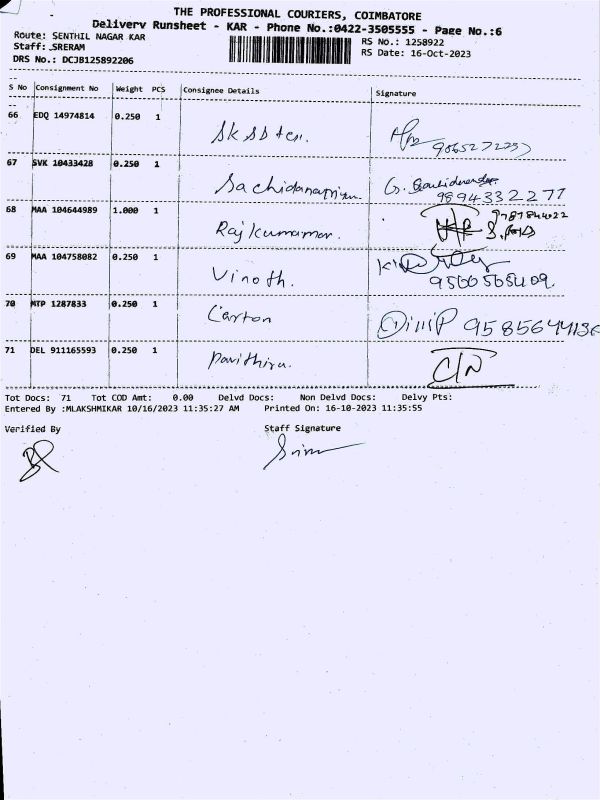 THE PROFESSIONAL COURIERS, COIMBATORE
Delivery Runsheet - KAR - Phone No.:0422-3505555 - Page No.:6
Route: SENTHIL NAGAR KAR
RS No.: 1258922
Staff: .SRERAM
RS Date: 16-Oct-2023
DRS No.: DCJB125892206
S No Consignment No Weight PCS Consignee Details Signature
66 EDQ 14974814 0.250 1
67 SVK 10433428 0.250 1
9894332277
68 MAA 104644989 1.000 1 Rajkumar
9787844022
69 MAA 104758082 0.250 1 Vinoth.
9566565409
70 MTP 1287833 0.250 1 Carton
9585644136
71 DEL 911165593 0.250 1 Pavithira.
C/N
Tot Docs: 71 Tot COD Amt: 0.00 Delvd Docs: Non Delvd Docs: Delvy Pts:
Entered By :MLAKSHMIKAR 10/16/2023 11:35:27 AM Printed On: 16-10-2023 11:35:55
Verified By Staff Signature